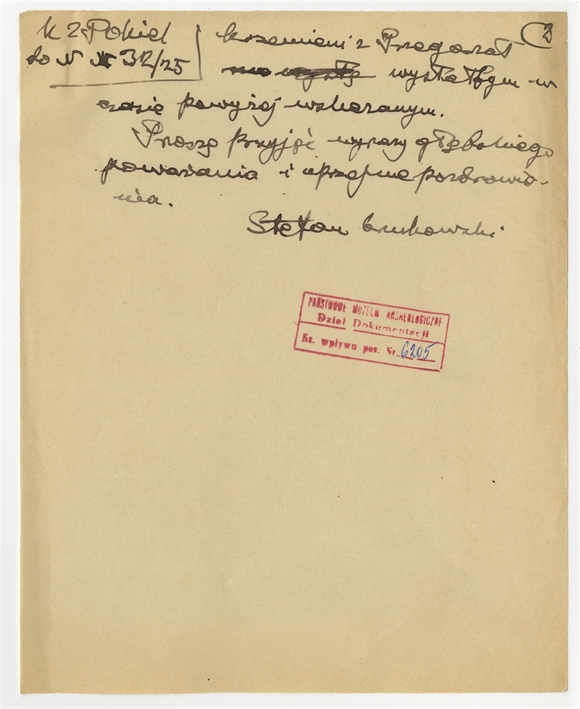 K 2 Pokiel
do N 32/25
2
krzemieni z Przegorzał
wysłałbym w
czasie powyżej wskazanym.
Proszę przyjąć wyrazy głębokiego
poważania i uprzejme pozdrowie-
nia.
Stefan Krukowski
PAŃSTWOWE MUZEUM ARCHEOLOGICZNE
Dział Dokumentacji
Ks. wpływu poz. Nr 6205